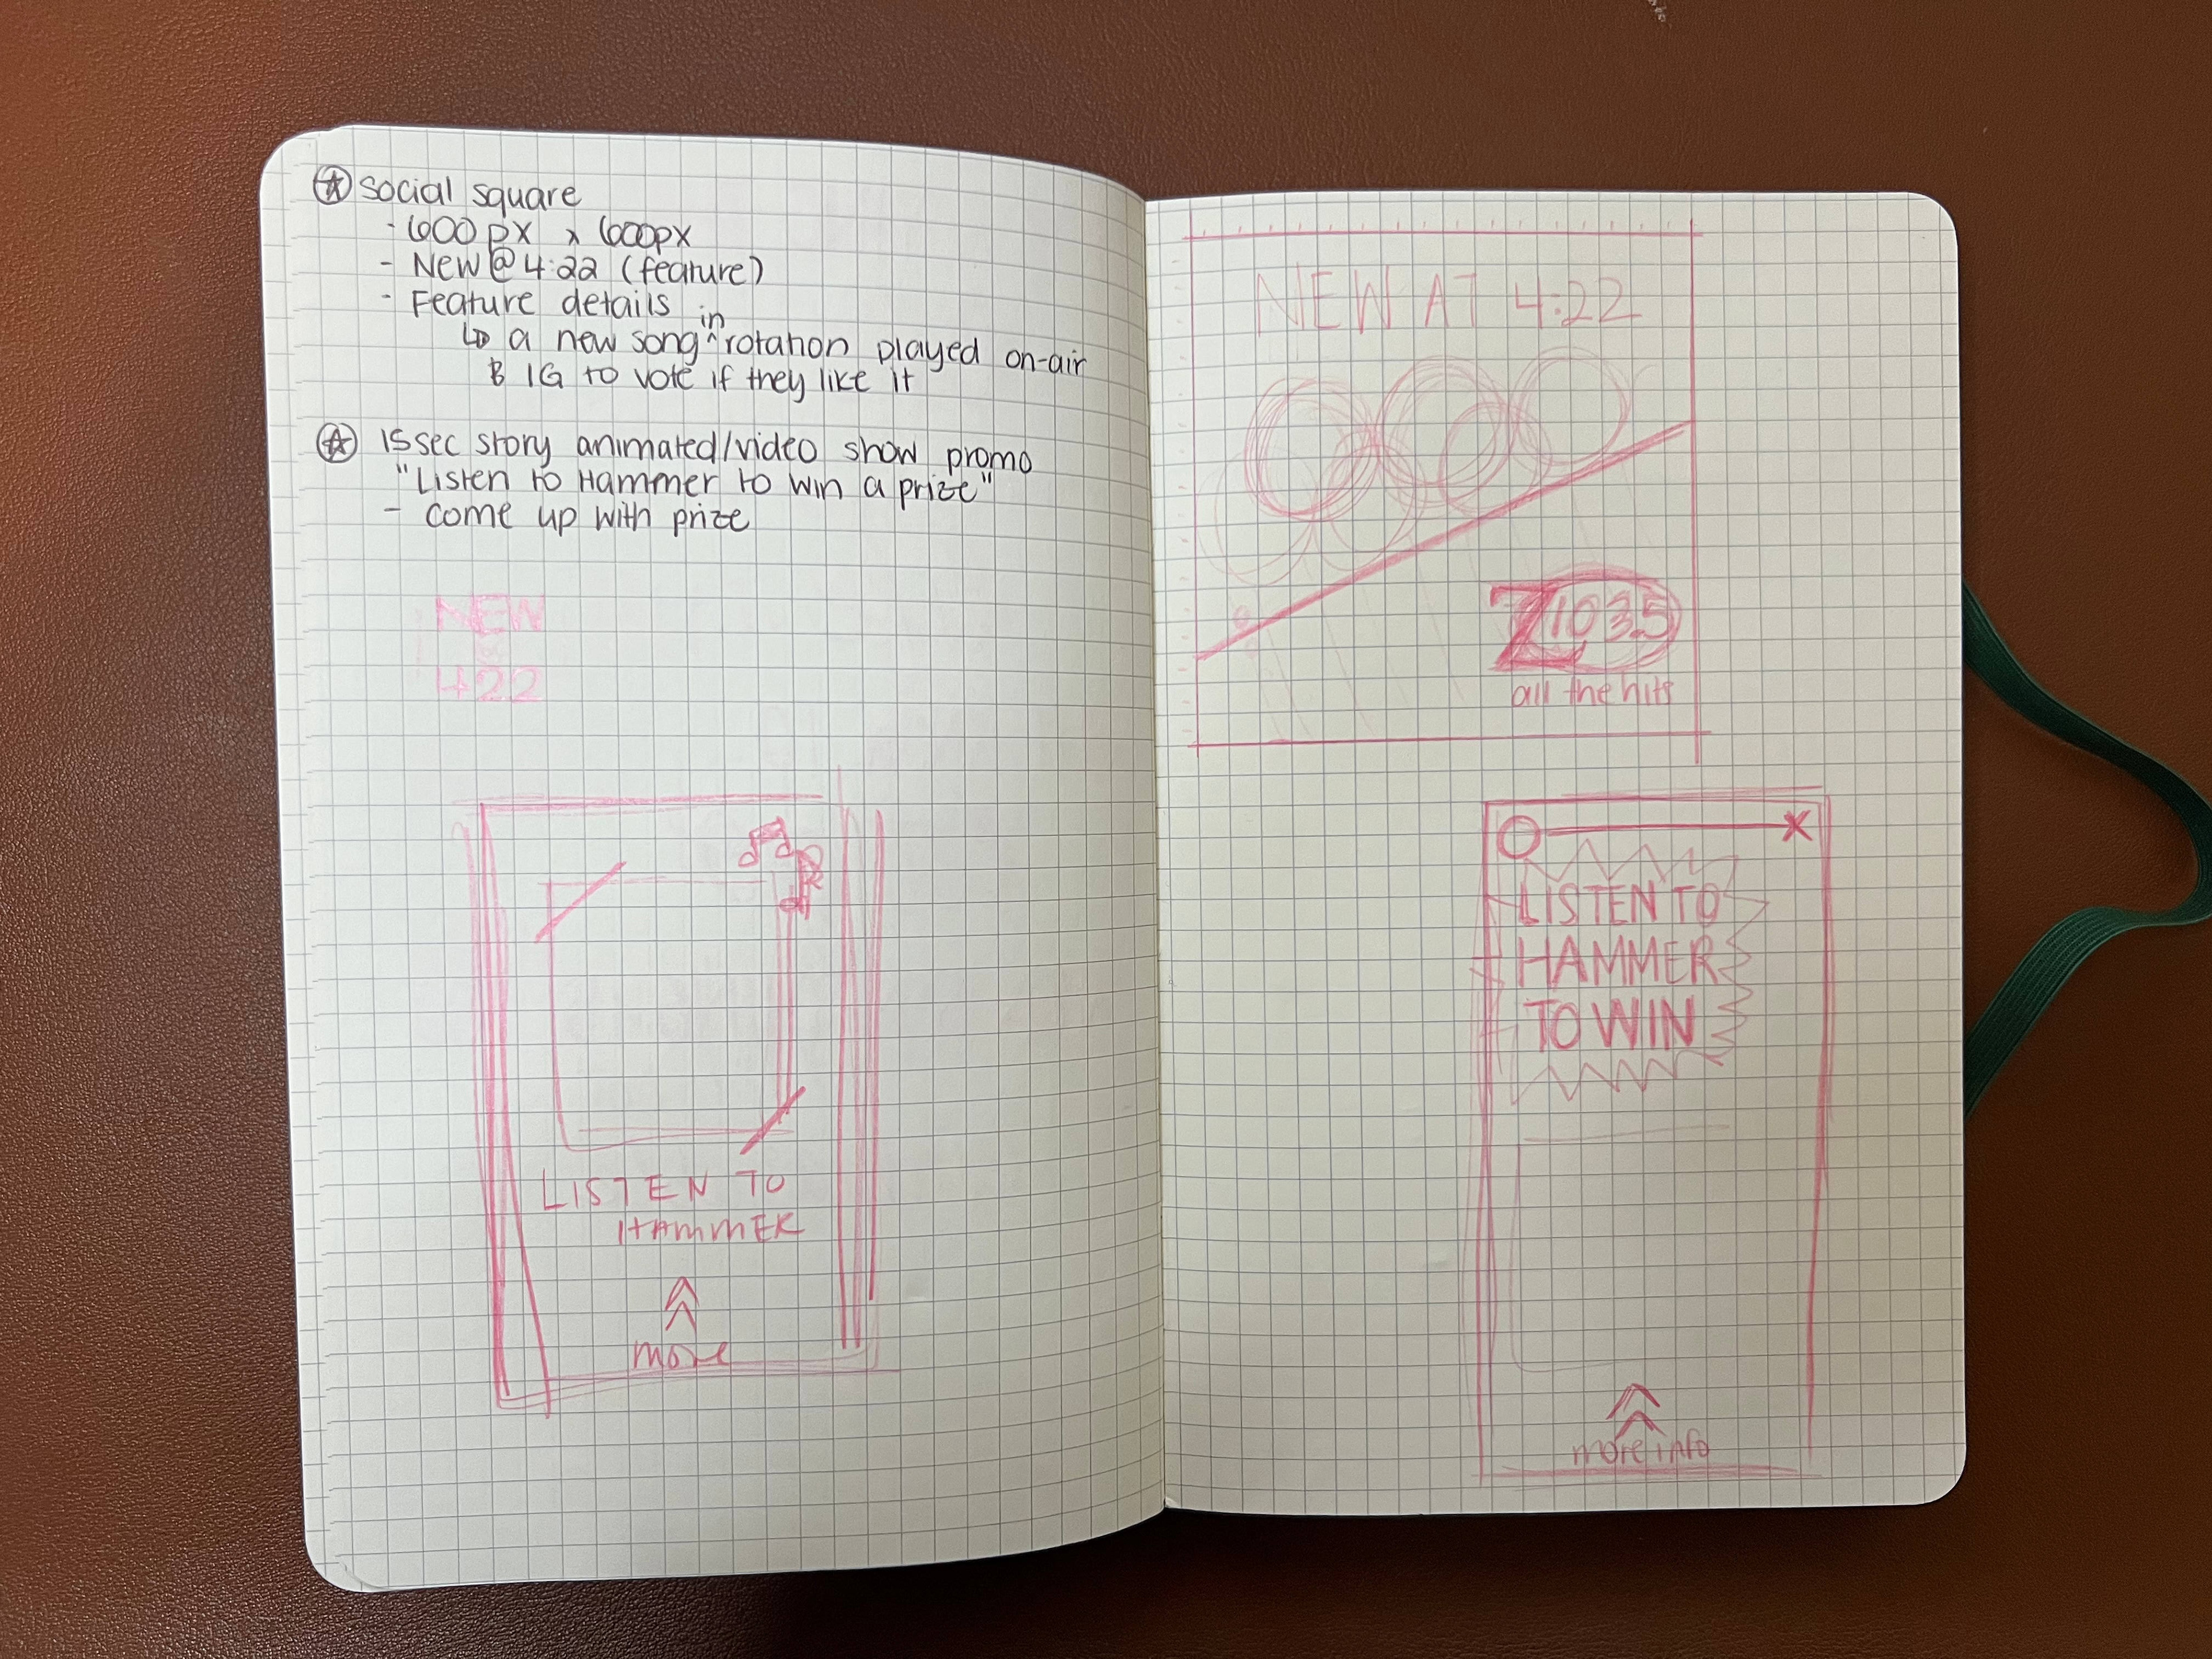 social square
- 600px x 600px
- New @ 4:22 (feature)
- Feature details
↳ a new song ^in rotation played on-air
& IG to vote if they like it
15sec story animated/video show promo
"Listen to Hammer to win a prize"
- come up with prize
NEW
422
LISTEN TO
HAMMER
more
NEW AT 4:22
Z103.5
all the hits
LISTEN TO
HAMMER
TO WIN
more info